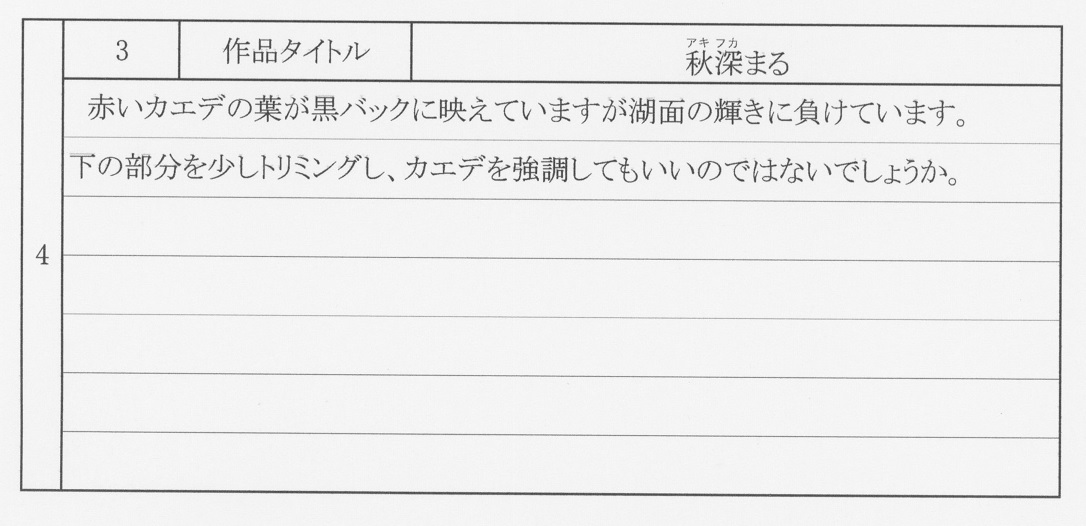 3 作品タイトル 秋深まる
アキ フカ
赤いカエデの葉が黒バックに映えていますが湖面の輝きに負けています。
下の部分を少しトリミングし、カエデを強調してもいいのではないでしょうか。
4